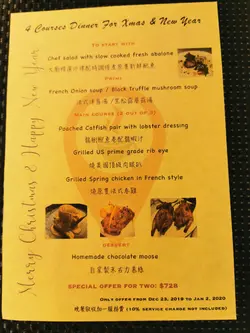 4 Courses Dinner For Xmas & New Year
TO START WITH
Chef salad with slow cooked fresh abalone
POTAGE
French Onion soup / Black Truffle mushroom soup
法式洋葱湯 / 黑松露蘑菇湯
MAIN COURSE (2 OUT OF 3)
Poached Catfish pair with lobster dressing
Grilled US prime grade rib eye
Grilled Spring chicken in French style
燒原隻法式春雞
DESSERT
Homemade chocolate moose
自家製朱古力慕絲
SPECIAL OFFER FOR TWO: $728
Only offer from Dec 23, 2019 to Jan 2, 2020
(10% service charge not included)
Merry Christmas & Happy New Year